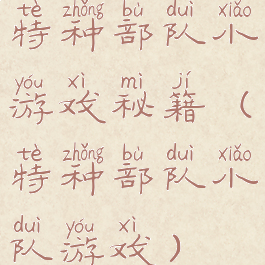 tè zhǒng bù duì xiǎo
特种部队小
yóu xì mì jí
游戏秘籍（
tè zhǒng bù duì xiǎo
特种部队小
duì yóu xì
队游戏）